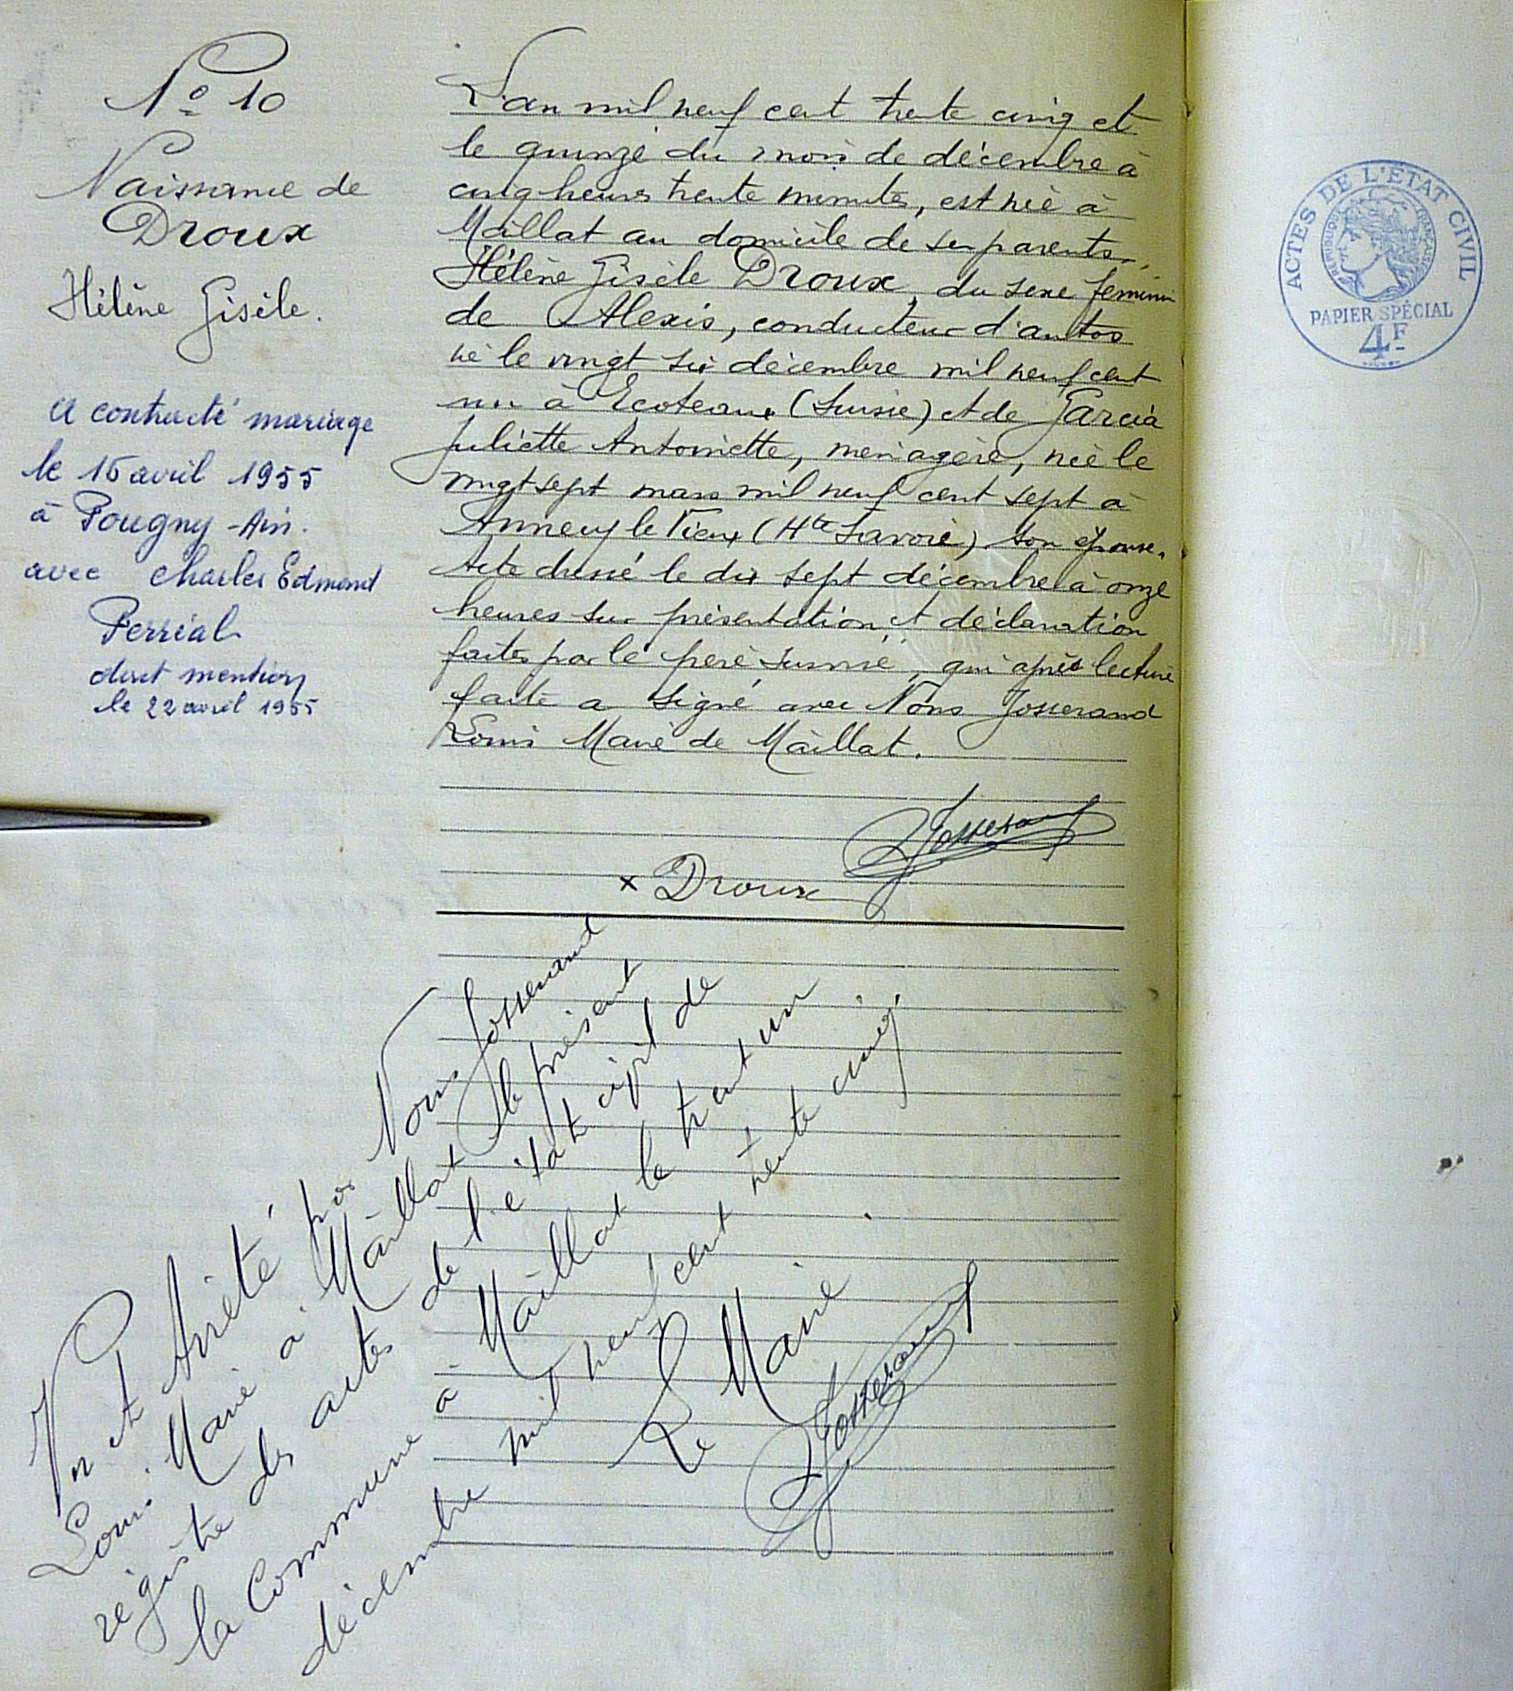 Nº 10
Naissance de
Droux
Hélène Gisèle.
a contracté mariage
le 15 avril 1955
à Pougny - Ain.
avec Charles Edmond
Perréal
dont mention
le 22 avril 1955
L'an mil neuf cent trente cinq et
le quinze du mois de décembre à
cinq heures trente minutes, est née à
Maillat au domicile de ses parents,
Hélène Gisèle Droux, du sexe féminin
de Alexis, conducteur d'autos
né le vingt six décembre mil neuf cent
à Ecoteaux (Suisse) et de Garcia
Juliette Antoinette, ménagère, née le
vingt sept mars mil neuf cent sept à
Annecy le Vieux (Hte Savoie) son épouse.
Acte dressé le dix sept décembre à onze
heures sur présentation et déclaration
faites par le père susnommé, qui après lecture
faite a signé avec Nous Josserand
Louis Maire de Maillat.
Josserand
x Droux
Vu et Arrêté par Nous Josserand
Louis. Maire à Maillat le présent
régistre des actes de l'état civil de
la Commune à Maillat le trent un
décembre mil neuf cent trente cinq.
Le Maire
Josserand
ACTES DE L'ÉTAT CIVIL
RÉPUBLIQUE FRANÇAISE
PAPIER SPÉCIAL
4F